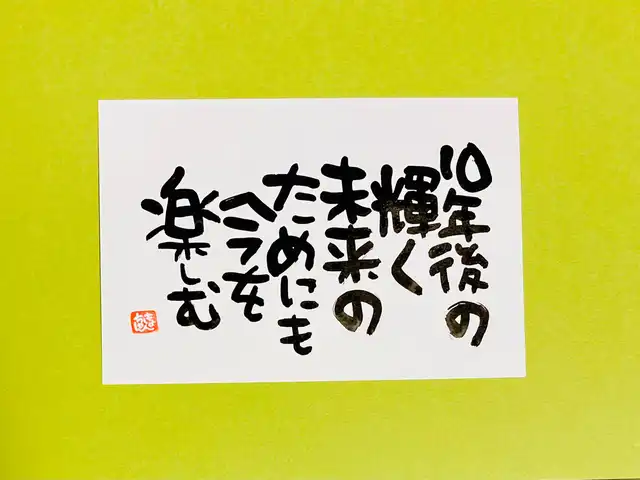 10年後の
輝く
未来の
ためにも
今を
楽しむ